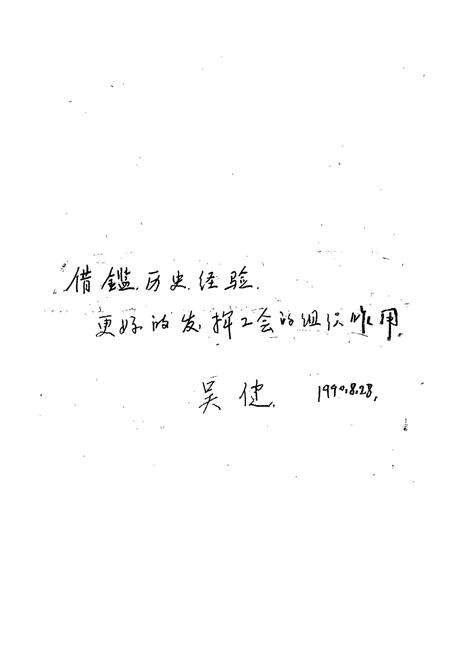 借鑑历史经验.
更好的发挥工会的组织作用.
吴健. 1990.8.28.